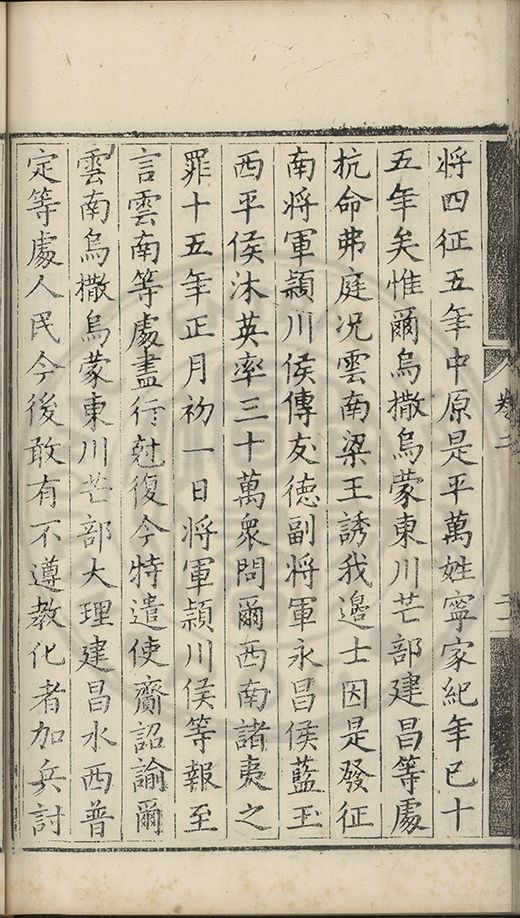 将四征五年中原是平萬姓寧家紀年已十
五年矣惟爾烏撒烏蒙東川芒部建昌等處
抗命弗庭况雲南梁王誘我邊士因是發征
南将軍穎川侯傅友德副将軍永昌侯藍玉
西平侯沐英率三十萬衆問爾西南諸夷之
罪十五年正月初一日将軍穎川侯等報至
言雲南等處盡行尅復今特遣使齎詔諭爾
雲南烏撒烏蒙東川芒部大理建昌水西普
定等處人民今後敢有不遵教化者加兵討
卷二